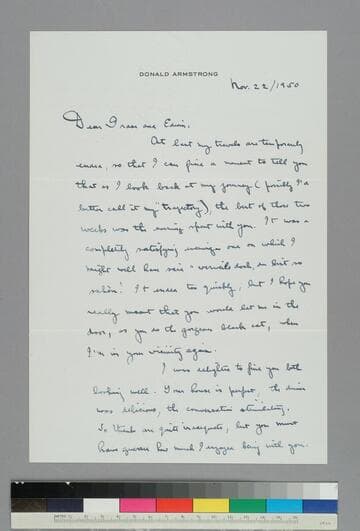 DONALD ARMSTRONG
Nov. 22/1950
Dear Grace and Edwin,
At last my travels are temporarily
ended, so that I can find a moment to tell you
that as I look back at my journey (possibly I'd
better call it my "trajectory"), the best of those two
weeks was the evening spent with you. It was a
completely satisfying evening one on which I
might well have said "
It ended too quickly, but I hope you
really meant that you would let me in the
door, as you do the gorgeous black cat, when
I'm in your vicinity again.
I was delighted to find you both
looking well. Your house is perfect, the dinner
was delicious, the conversation stimulating.
So thanks are quite inadequate, but you must
have guessed how much I enjoyed being with you.